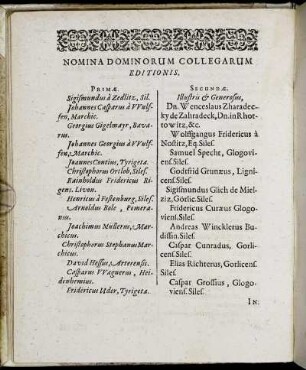 NOMINA DOMINORUM COLLEGARUM
EDITIONIS.
PRIMÆ.
Sigismundus à Zedlitz, Sil.
Johannes Casparus à VVulf-
fen, Marchic.
Georgius Gigelmayr, Bava-
rus.
Johannes Georgius à VVulf-
fen, Marchic.
Joannes Contius, Tyrigeta.
Christophorus Ortlob, Siles.
Rainholdus Fridericus Ri-
gens. Livon.
Henricus à Festenburg, Siles.
Arnoldus Bole, Pomera-
nus.
Joachimus Mullerus, Mar-
chicus.
Christophorus Stephanus Mar-
chicus.
David Hessus, Arterensis.
Casparus VVagnerus, Hei-
denhemius.
Fridericus Uder, Tyrigeta.
SECUNDÆ.
Illustris & Generosus,
Dn. Wenceslaus Zharadec-
ky de Zahradeck, Dn. in Rhot-
towitz, &c.
Wolfgangus Fridericus à
Nostitz, Eq. Siles.
Samuel Specht, Glogovi-
ens. Siles.
Godefrid Grunæus, Ligni-
cens. Siles.
Sigismundus Glich de Miel-
ziz, Görlic. Siles.
Fridericus Curæus Glogo-
viens. Siles.
Andreas Wincklerus Bu-
dissin. Siles.
Caspar Cunradus, Gorli-
cens. Siles.
Elias Richterus, Gorlicens.
Siles.
Caspar Grossius, Glogo-
viens. Siles.
IN.